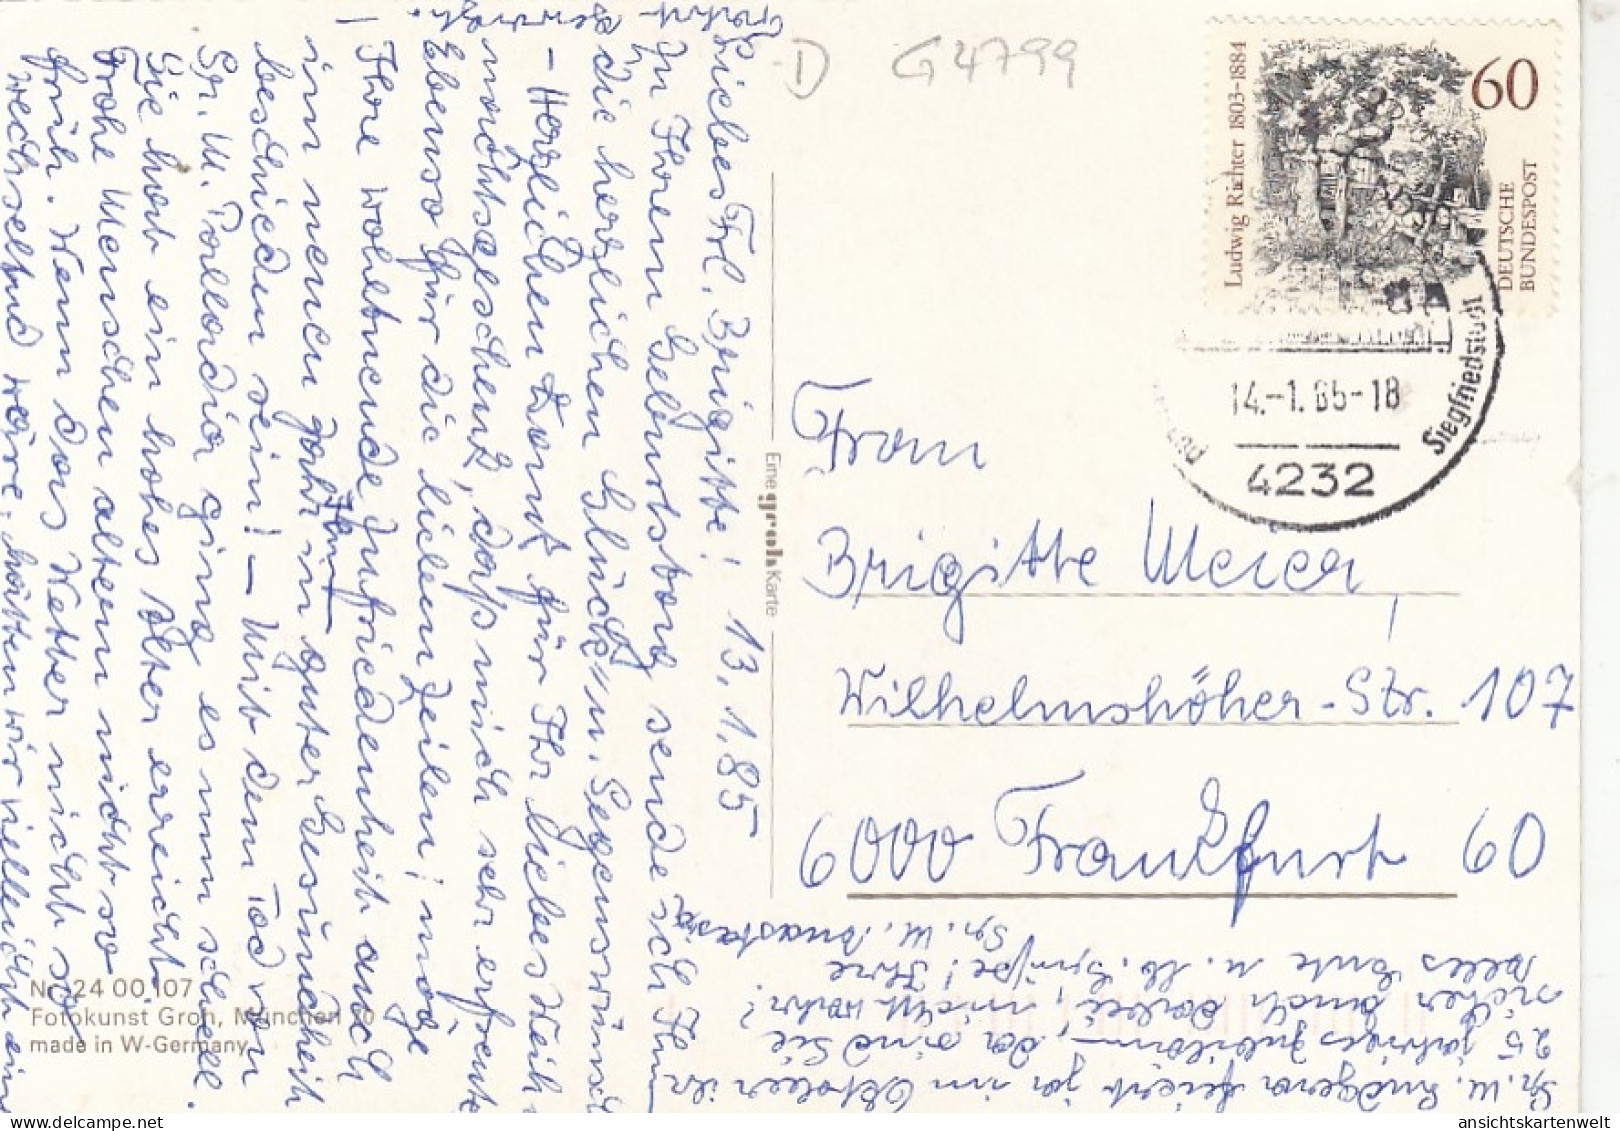 D G4799
Ludwig Richter 1803-1884
60
DEUTSCHE
BUNDESPOST
14.-1.85-18
4232
Siegfriedstadt
Frau
Brigitte Meier,
Wilhelmshöher-Str. 107
6000 Frankfurt 60
Eine groh Karte
13.1.85
Liebes Frl. Brigitte!
Zu Ihrem Geburtstag sende ich Ihnen
die herzlichen Glück- u. Segenswünsche
- Herzlichen Dank für Ihr liebes Weih-
nachtsgeschenk, daß mich sehr erfreute
Ebenso für die lieben Zeilen; möge
Ihre wohltuende Zufriedenheit auch
im neuen Jahr in guter Gesundheit
Ihnen
beschieden sein! - Mit dem Tod von
Sr. M. Palladia ging es nun schnell.
Sie hat ein hohes Alter erreicht
Frohe Menschen altern nicht so
früh. Wenn das Wetter nicht so
wechselnd wäre, hätten wir vielleicht ein
Sr. M. feiert ja im Oktober ihr
25 jähriges Jubiläum, da sind Sie
sicher auch dabei, nicht wahr?
Alles Gute u. lb. Grüße! Ihre
Sr. M. Anastasia
Nr. 24 00 107
Fotokunst Groh, München 20
made in W-Germany
ansichtskartenwelt